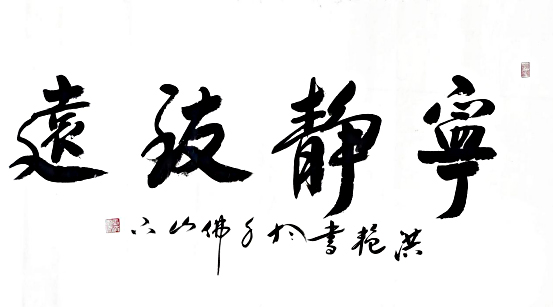 寧靜致遠
洪艳書於千佛山下